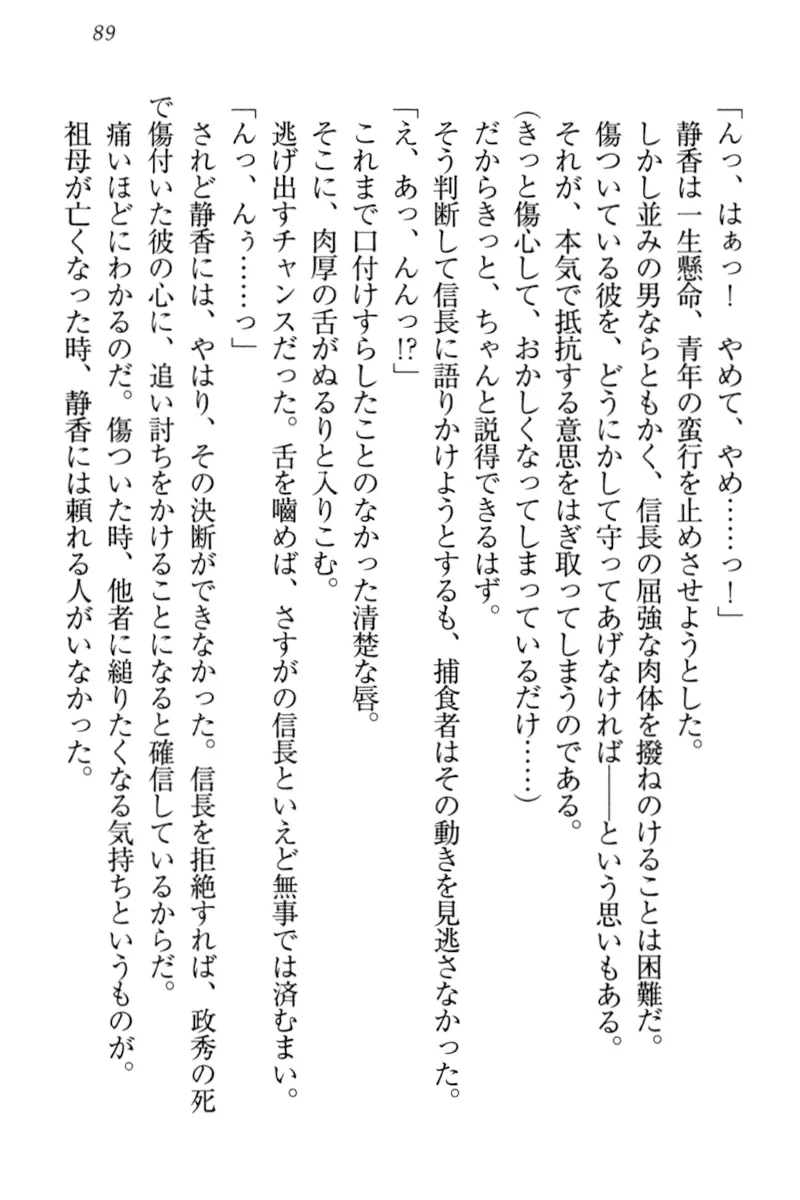 89
「んっ、はぁっ！　やめて、やめ……っ！」
静香は一生懸命、青年の蛮行を止めさせようとした。
しかし並みの男ならともかく、信長の屈強な肉体を撥ねのけることは困難だ。
傷ついている彼を、どうにかして守ってあげなければ――という思いもある。
それが、本気で抵抗する意思をはぎ取ってしまうのである。
（きっと傷心して、おかしくなってしまっているだけ……）
だからきっと、ちゃんと説得できるはず。
そう判断して信長に語りかけようとするも、捕食者はその動きを見逃さなかった。
「え、あっ、んんっ!?」
これまで口付けすらしたことのなかった清楚な唇。
そこに、肉厚の舌がぬるりと入りこむ。
逃げ出すチャンスだった。舌を嚙めば、さすがの信長といえど無事では済むまい。
「んっ、んぅ……っ」
されど静香には、やはり、その決断ができなかった。信長を拒絶すれば、政秀の死
で傷付いた彼の心に、追い討ちをかけることになると確信しているからだ。
痛いほどにわかるのだ。傷ついた時、他者に縋りたくなる気持ちというものが。
祖母が亡くなった時、静香には頼れる人がいなかった。